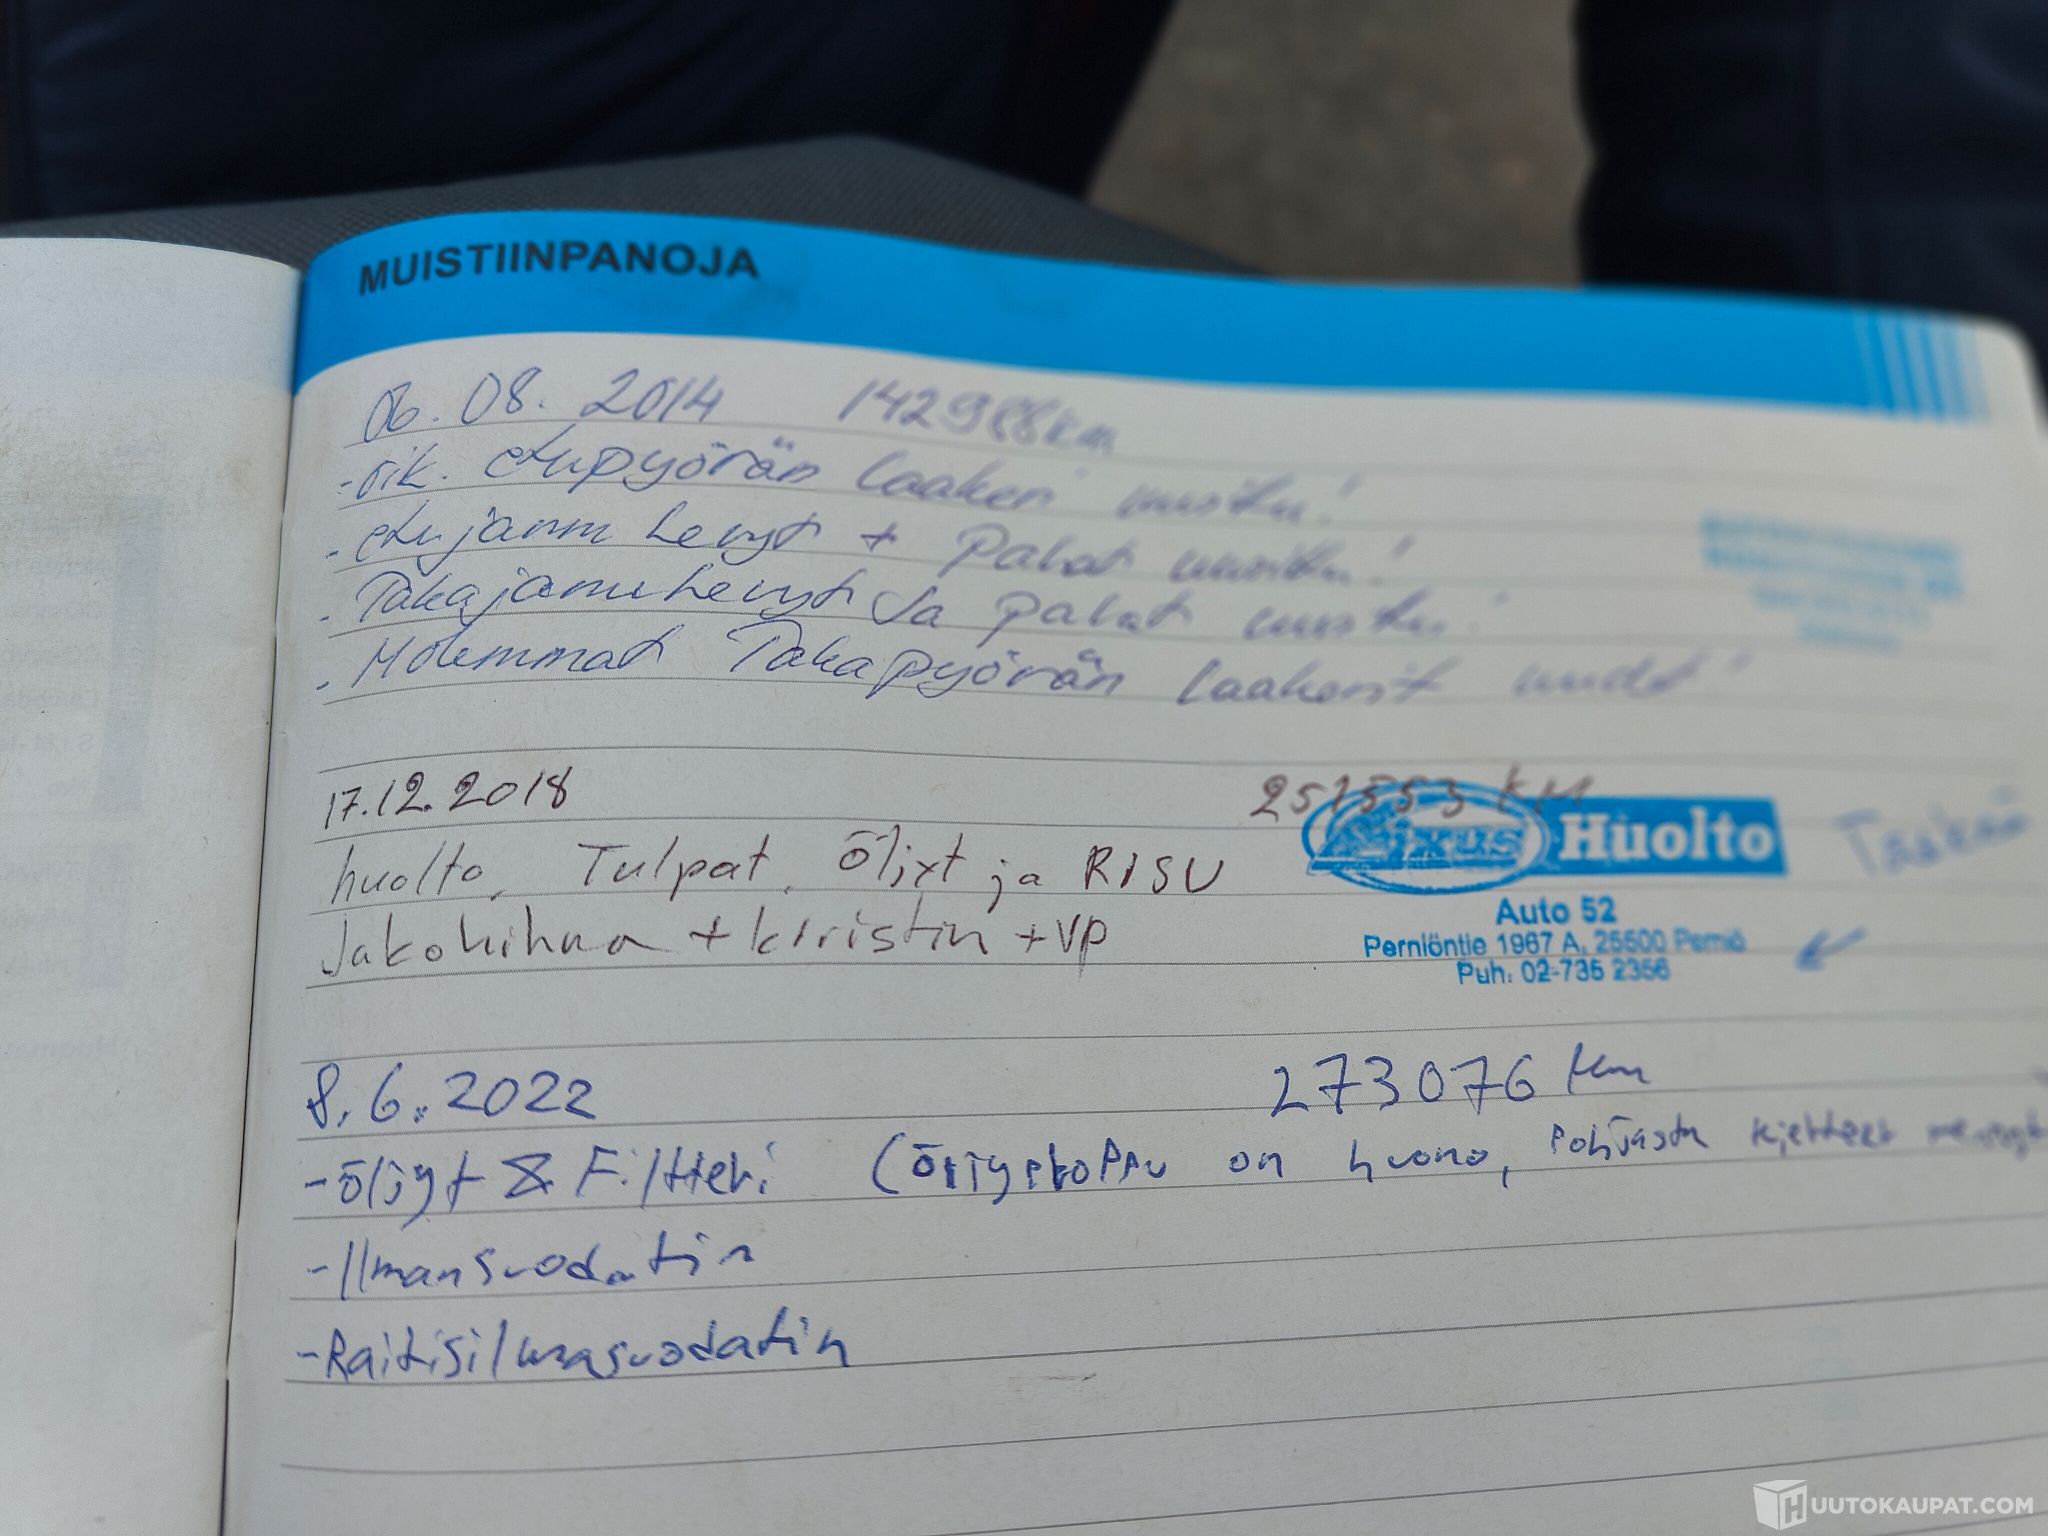 MUISTIINPANOJA
06.08.2014 142988km
-oik. etupyörän laakeri uusittu!
- etujarru levyt + palat uusittu!
- Takajarrulevyt ja palat uusittu!
- Molemmat Takapyörän laakerit uudet!
17.12.2018 251553 KM
huolto, Tulpat, öljyt ja RISU
Jakohihna + kiristin + VP
Huolto
Auto 52
Perniöntie 1967 A, 25500 Perniö
Puh. 02-735 2356
8.6.2022 273076 km
-öljyt & Filtteri (öljypohja on huono, pohjasta
-Ilmansuodatin
-Raitisilmasuodatin
HUUTOKAUPAT.COM